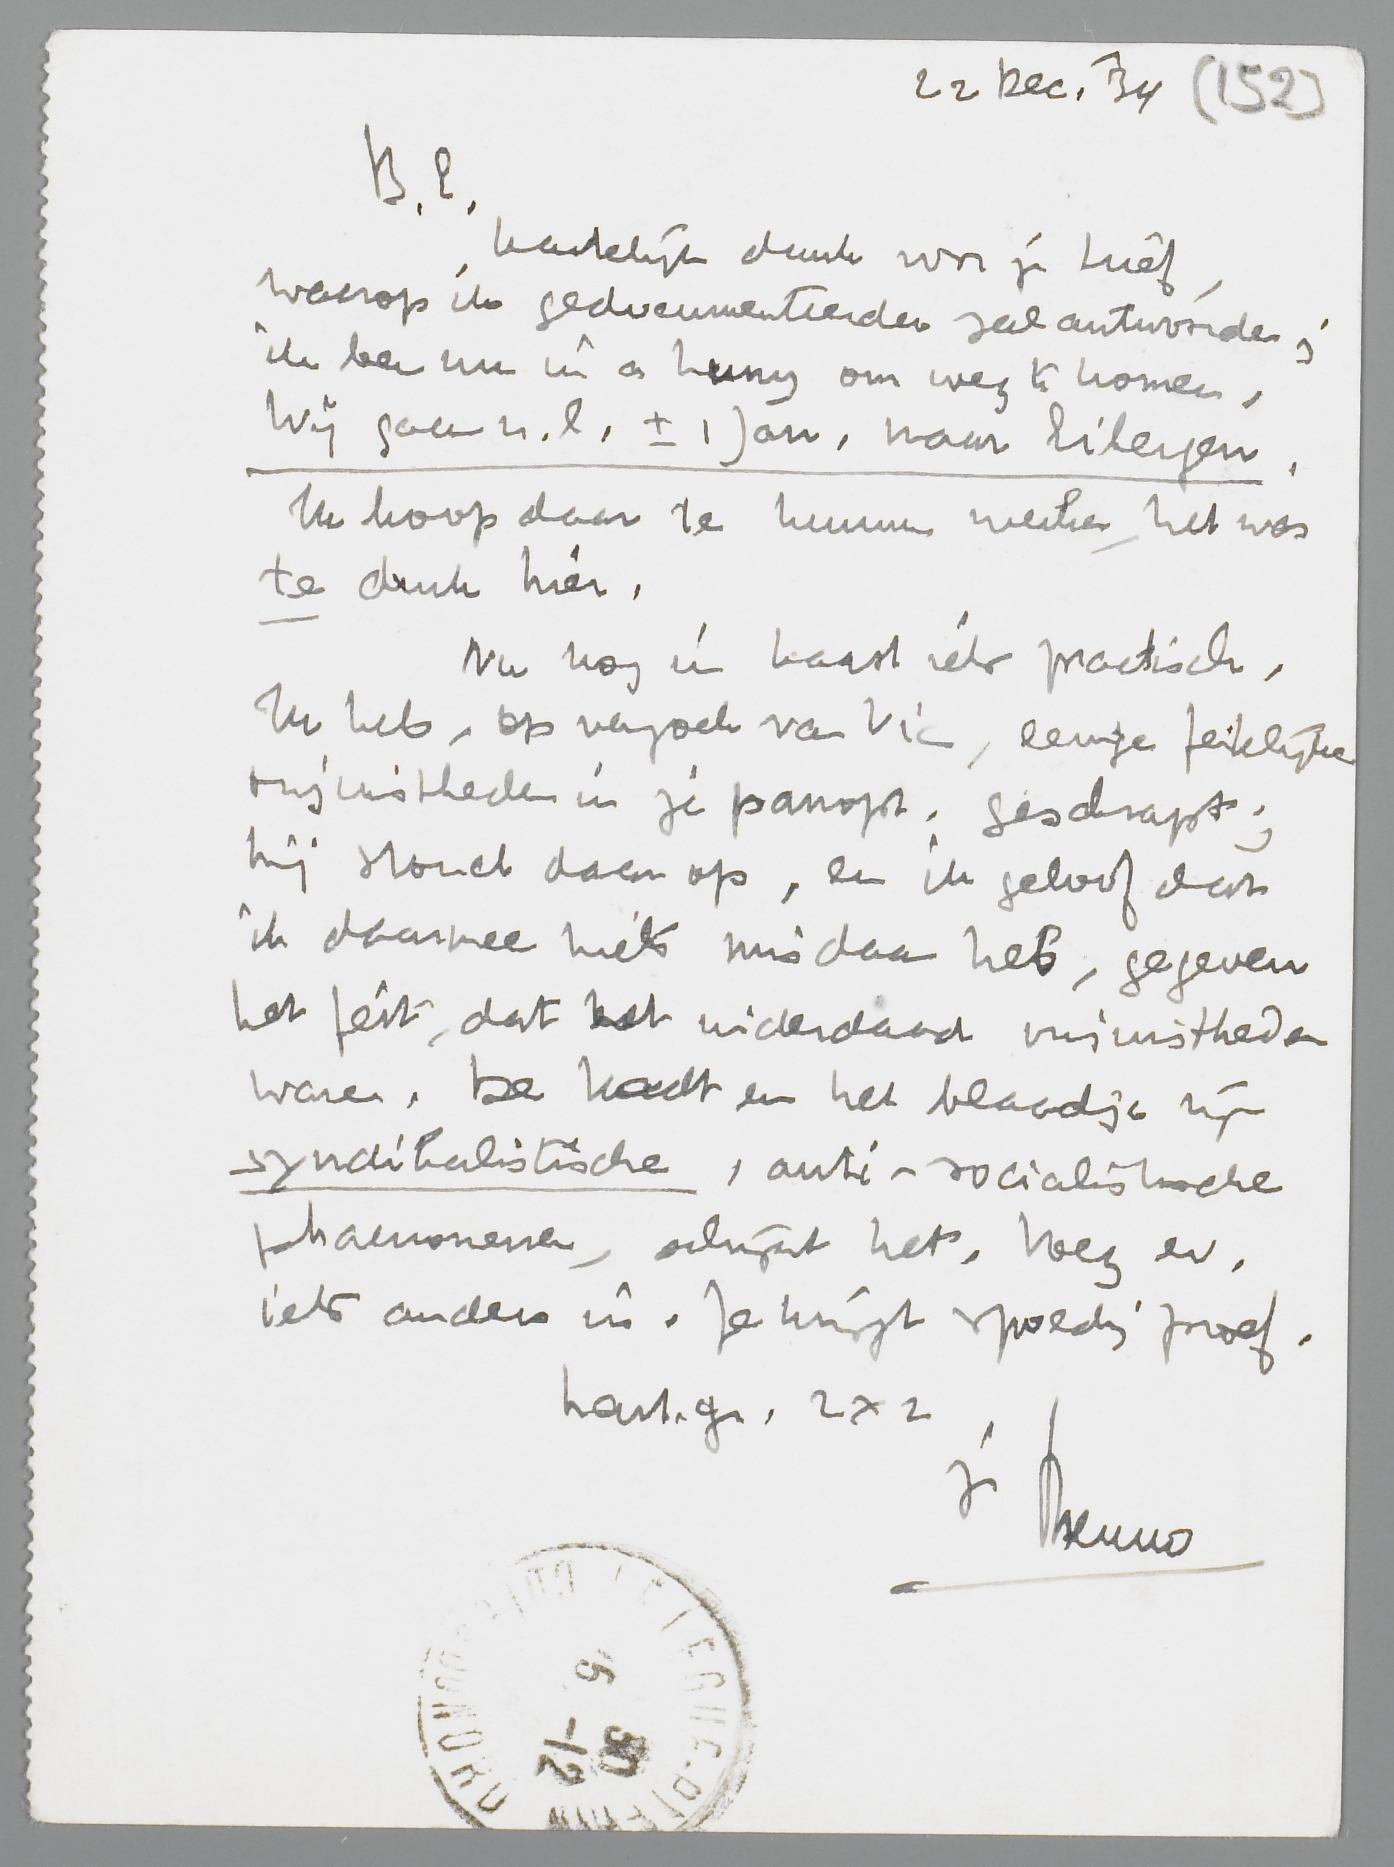 22 Dec. '34 (152)
B. E.,
hartelijk dank voor je brief,
waarop ik gedocumenteerder zal antwoorden;
ik ben nu in a hurry om weg te komen.
Wij gaan n.l. ± 1 Jan. naar Eibergen.
Ik hoop daar te kunnen werken, het was
te druk hier.
Nu nog in haast iets practisch.
Ik heb, op verzoek van Vic, eenige feitelijke
onjuistheden in je panopt. geschrapt;
hij stond daar op, en ik geloof dat
ik daarmee niets misdaan heb, gegeven
het feit, dat het inderdaad onjuistheden
waren. De Kadt en het blaadje zijn
syndikalistische, anti-socialistische
phaenomenen, schijnt het. Voeg ev.
iets anders in. Je krijgt spoedig proef.
hart. gr. 2 x 2
je Menno
5 -12
30